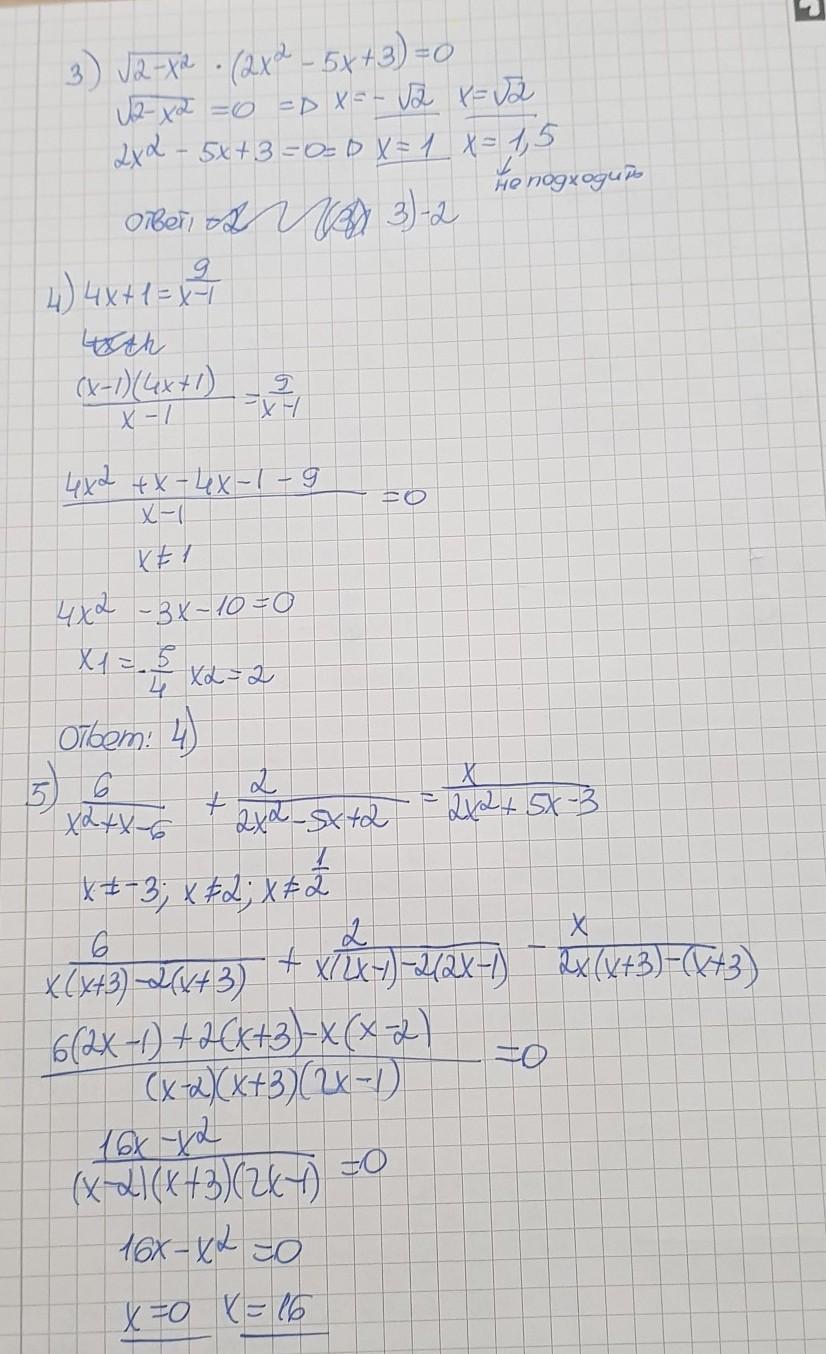 3) √2-x² · (2x² - 5x+3)=0
√2-x² =0 => x=-√2 x=√2
2x² - 5x+3=0=> x=1 x=1,5
не подходить
ответ, 3)-2
4) 4x+1= 9/x-1
(x-1)(4x+1)/x-1 = 9/x-1
4x² +x-4x-1-9/x-1 =0
x≠1
4x² -3x-10=0
x1=-5/4 x2=2
Ответ: 4)
5) 6/x²+x-6 + 2/2x²-5x+2 = x/2x²+5x-3
x≠-3; x≠2; x≠1/2
6/x(x+3)-2(x+3) + 2/x(2x-1)-2(2x-1) - x/2x(x+3)-(x+3)
6(2x-1)+2(x+3)-x(x-2)/(x-2)(x+3)(2x-1) =0
16x-x²/(x-2)(x+3)(2x-1) =0
16x-x²=0
x=0 x=16